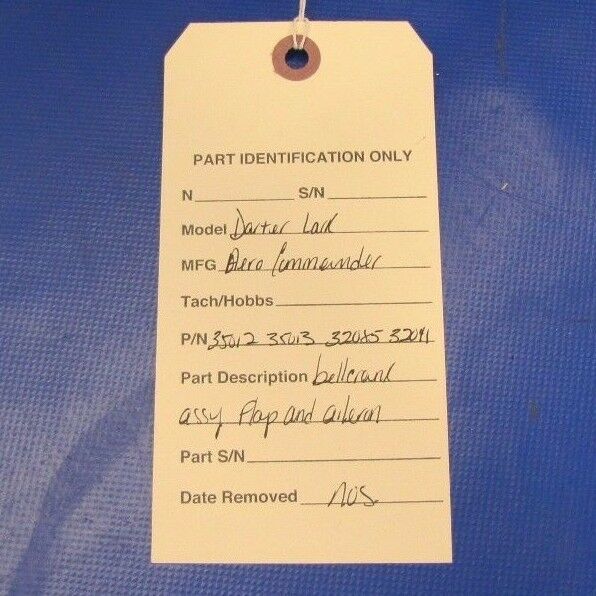 PART IDENTIFICATION ONLY
N S/N
Model Darter Lark
MFG Aero Commander
Tach/Hobbs
P/N 35012 35013 32085 32091
Part Description bellcrank
assy Flap and aileron
Part S/N
Date Removed NOS